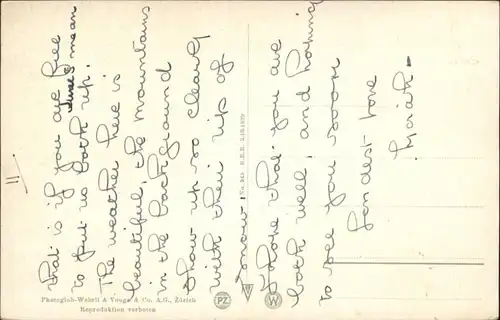 11
that is if you are free
times mean
to put us both up.
The weather here is
beautiful, the mountains
in the background
show up so clearly
with their tip of
snow.
I hope that you are
both well, and hoping
to see you soon
fondest love
No. 245 R.E.B. 2.10.1929
Photoglob-Wehrli & Vouga & Co. A.G., Zürich
Reproduktion verboten
PZ
W